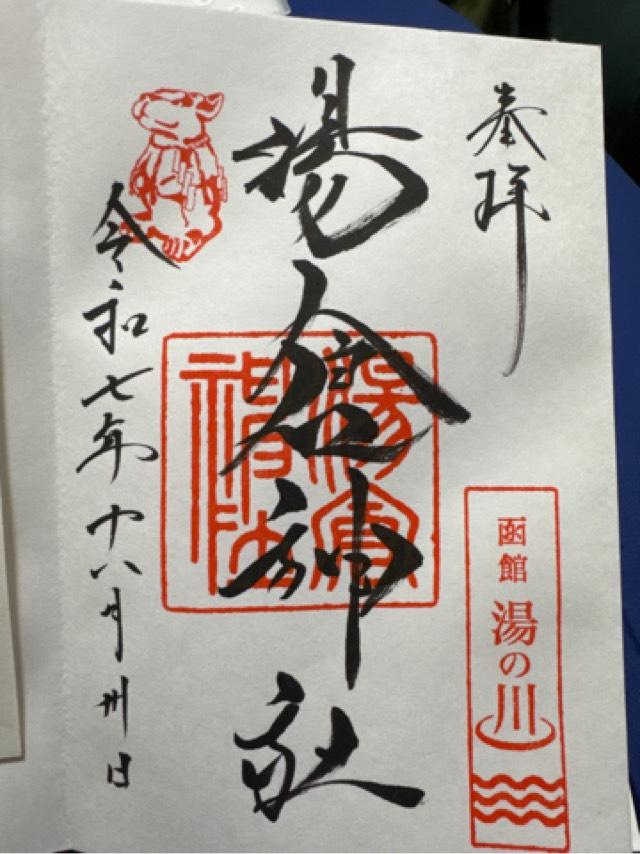 奉拝
函館
湯の川
湯倉神社
湯倉
神社
令和七年八月卅日